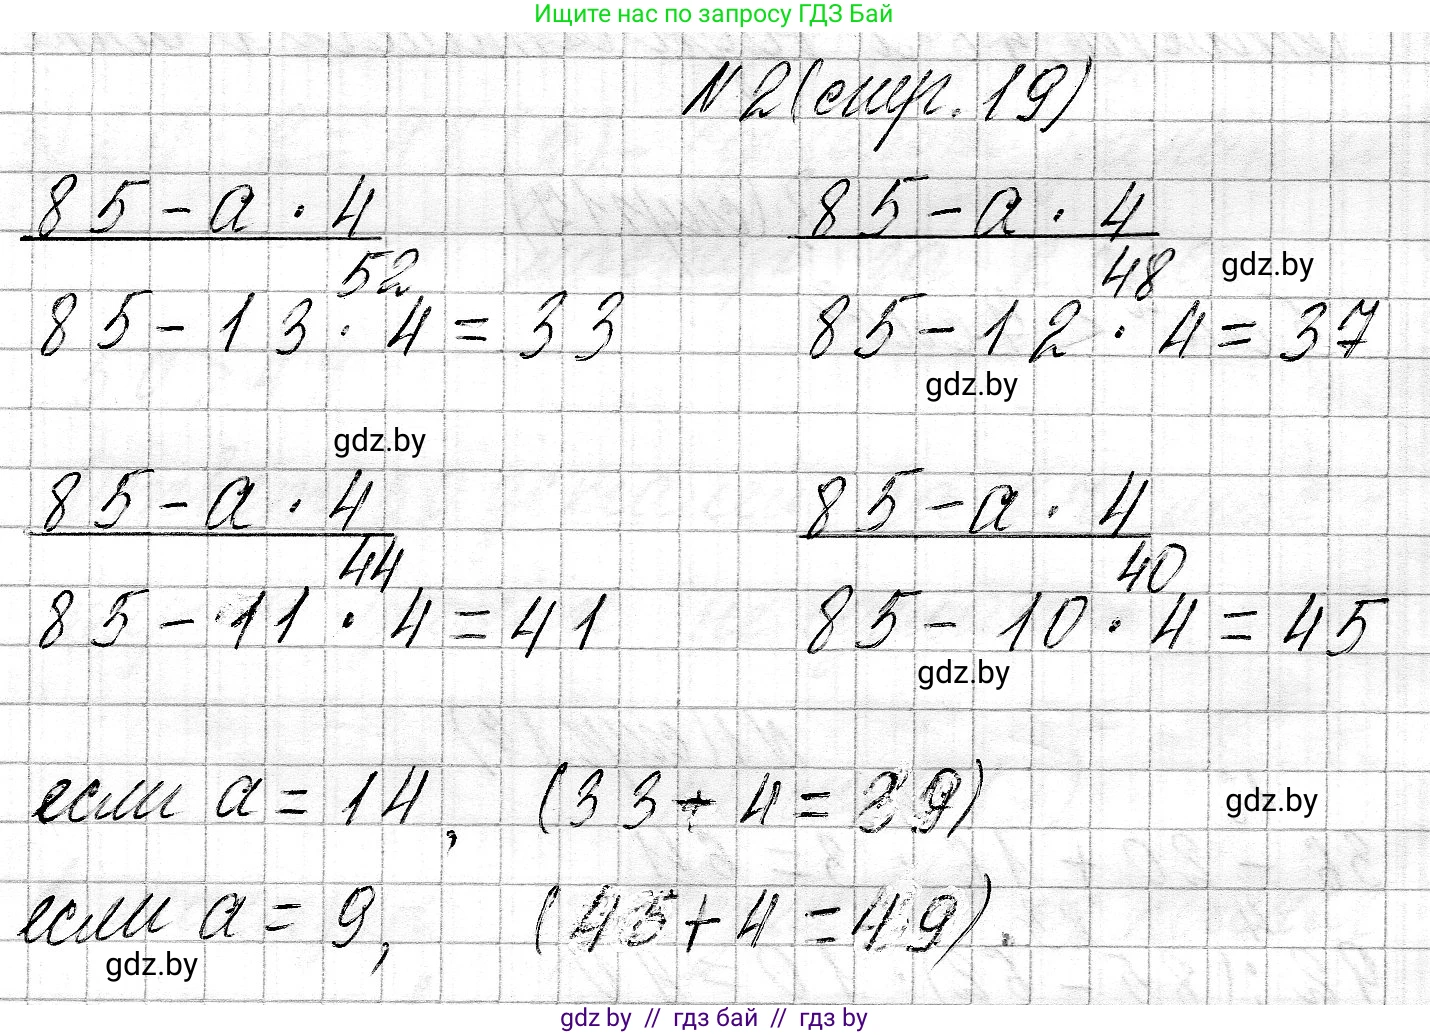 Ищите нас по запросу ГДЗ Бай
№2(стр. 19)
85-a·4 85-a·4
52 48 gdz.by
85-13·4=33 85-12·4=37
gdz.by
gdz.by
85-a·4 85-a·4
44 40
85-11·4=41 85-10·4=45
gdz.by
если a=14, (33+4=39)
gdz.by
если a=9, (45+4=49).
gdz.by
gdz by // гдз бай // гдз by